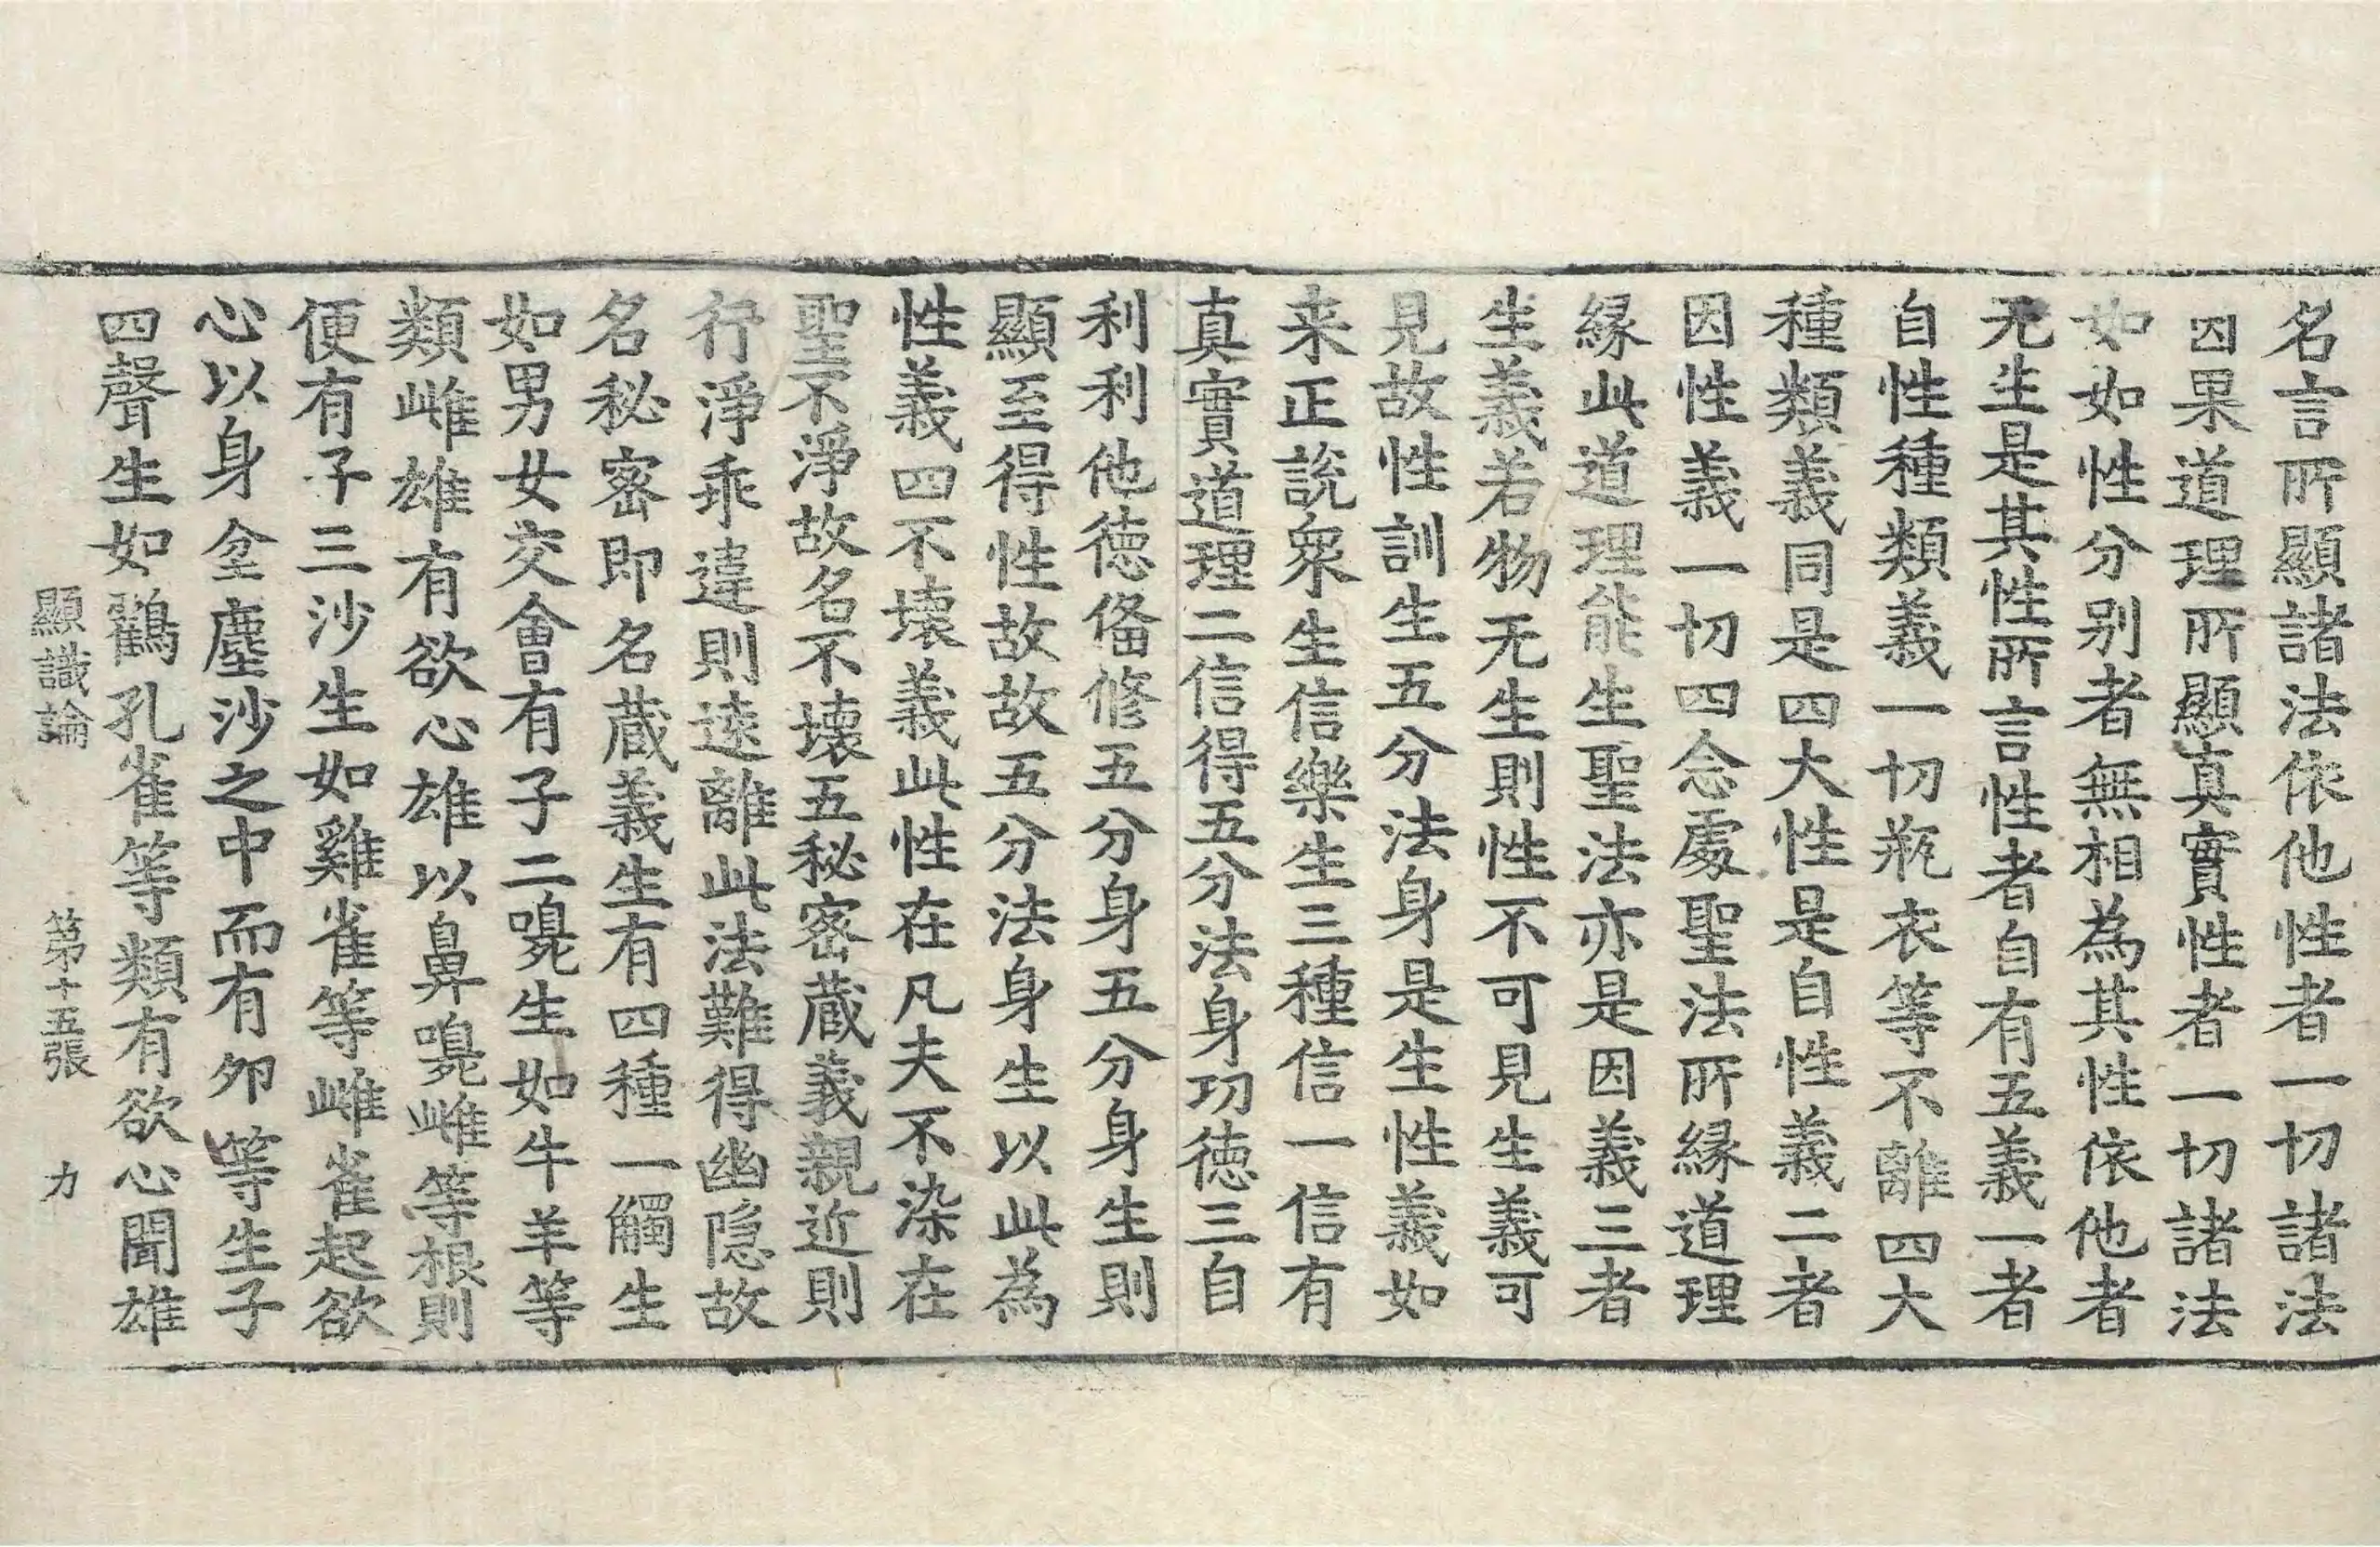 名言所顯諸法依他性者一切諸法
因果道理所顯真實性者一切諸法
如如性分別者無相為其性依他者
无生是其性所言性者自有五義一者
自性種類義一切瓶衣等不離四大
種類義同是四大性是自性義二者
因性義一切四念處聖法所緣道理
緣此道理能生聖法亦是因義三者
生義若物无生則性不可見生義可
見故性訓生五分法身是生性義如
来正說衆生信樂生三種信一信有
真實道理二信得五分法身功徳三自
利利他徳俻修五分身五分身生則
顯至得性故故五分法身生以此為
性義四不壞義此性在凡夫不染在
聖不淨故名不壊五秘密蔵義親近則
行淨乖違則逺離此法難得幽隠故
名秘密即名蔵義生有四種一觸生
如男女交會有子二嗅生如牛羊等
類雌雄有欲心雄以鼻嗅雌等根則
便有子三沙生如雞雀等雌雀起欲
心以身坌塵沙之中而有夘等生子
四聲生如鶴孔雀等類有欲心聞雄
顯識論 第十五張 力